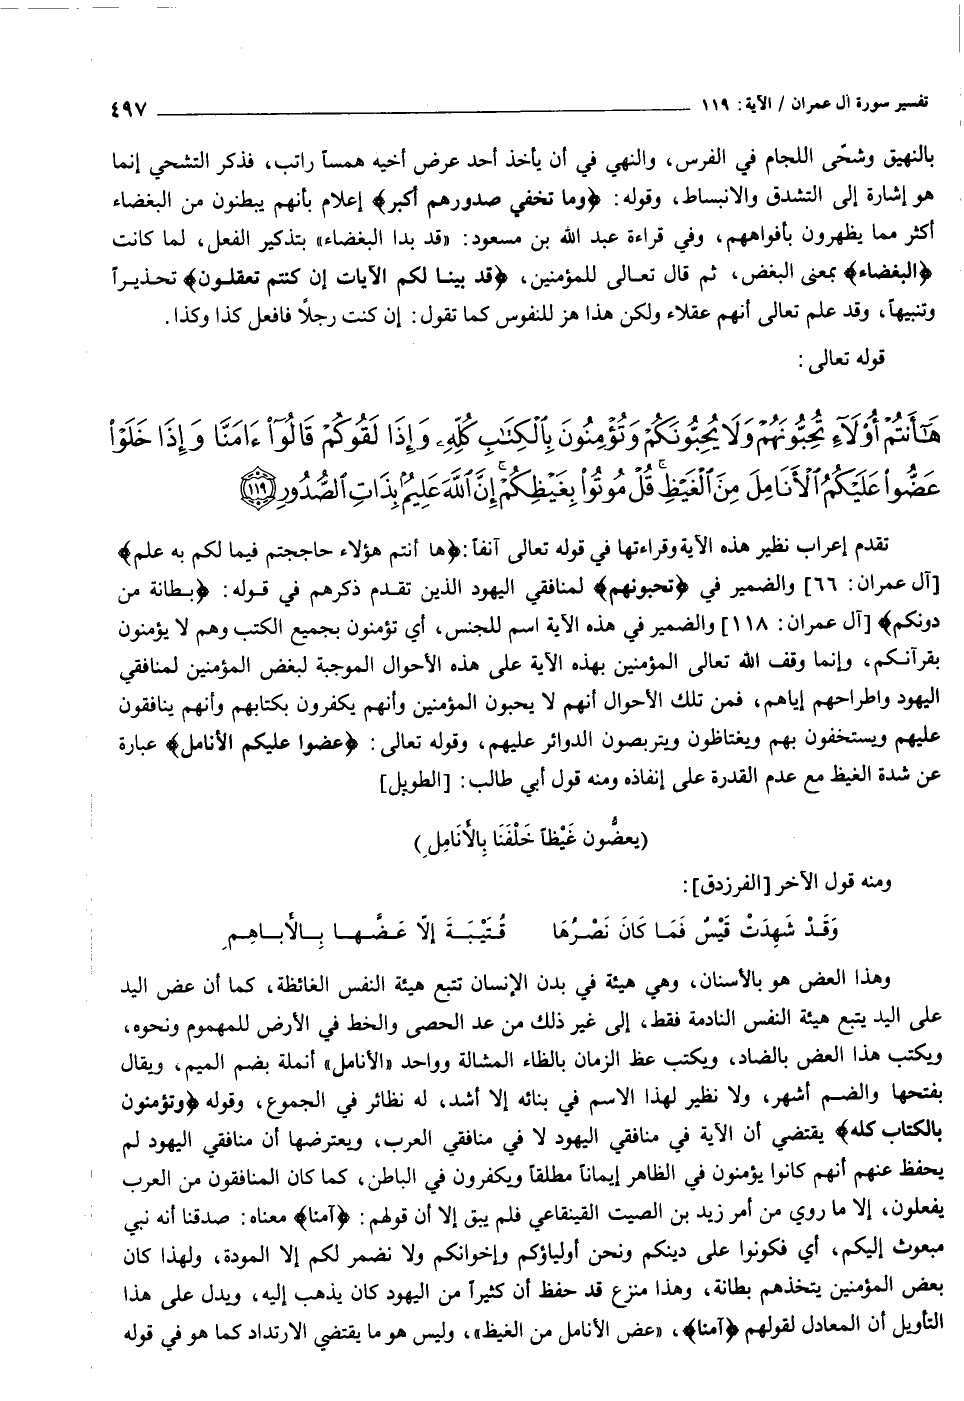 تفسير سورة آل عمران / الآية: ١١٩ ٤٩٧
بالنهيق وشحّى اللجام في الفرس، والنهي في أن يأخذ أحد عرض أخيه همساً راتب، فذكر التشحي إنما
هو إشارة إلى التشدق والانبساط، وقوله: ﴿وما تخفي صدورهم أكبر﴾ إعلام بأنهم يبطنون من البغضاء
أكثر مما يظهرون بأفواههم، وفي قراءة عبد الله بن مسعود: «قد بدا البغضاء» بتذكير الفعل، لما كانت
﴿البغضاء﴾ بمعنى البغض، ثم قال تعالى للمؤمنين، ﴿قد بينا لكم الآيات إن كنتم تعقلون﴾ تحذيراً
وتنبيهاً، وقد علم تعالى أنهم عقلاء ولكن هذا هز للنفوس كما تقول: إن كنت رجلاً فافعل كذا وكذا.
قوله تعالى:
هَٰٓأَنتُمْ أُوْلَآءِ تُحِبُّونَهُمْ وَلَا يُحِبُّونَكُمْ وَتُؤْمِنُونَ بِٱلْكِتَٰبِ كُلِّهِۦ وَإِذَا لَقُوكُمْ قَالُوٓاْ ءَامَنَّا وَإِذَا خَلَوْاْ
عَضُّواْ عَلَيْكُمُ ٱلْأَنَامِلَ مِنَ ٱلْغَيْظِ ۚ قُلْ مُوتُواْ بِغَيْظِكُمْ ۗ إِنَّ ٱللَّهَ عَلِيمٌۢ بِذَاتِ ٱلصُّدُورِ ١١٩
تقدم إعراب نظير هذه الآية وقراءتها في قوله تعالى آنفاً: ﴿ها أنتم هؤلاء حاججتم فيما لكم به علم﴾
[آل عمران: ٦٦] والضمير في ﴿تحبونهم﴾ لمنافقي اليهود الذين تقدم ذكرهم في قوله: ﴿بطانة من
دونكم﴾ [آل عمران: ١١٨] والضمير في هذه الآية اسم للجنس، أي تؤمنون بجميع الكتب وهم لا يؤمنون
بقرآنكم، وإنما وقف الله تعالى المؤمنين بهذه الآية على هذه الأحوال الموجبة لبغض المؤمنين لمنافقي
اليهود واطراحهم إياهم، فمن تلك الأحوال أنهم لا يحبون المؤمنين وأنهم يكفرون بكتابهم وأنهم ينافقون
عليهم ويستخفون بهم ويغتاظون ويتربصون الدوائر عليهم، وقوله تعالى: ﴿عضوا عليكم الأنامل﴾ عبارة
عن شدة الغيظ مع عدم القدرة على إنفاذه ومنه قول أبي طالب: [الطويل]
(يعضُّون غَيْظاً خَلْفَنَا بِالأَنَامِلِ)
ومنه قول الآخر [الفرزدق]:
وَقَدْ شَهِدَتْ قَيْسٌ فَمَا كَانَ نَصْرُهَا قُتَيْبَةَ إلّا عَضَّهَا بِالأَبَاهِمِ
وهذا العض هو بالأسنان، وهي هيئة في بدن الإنسان تتبع هيئة النفس الغائظة، كما أن عض اليد
على اليد يتبع هيئة النفس النادمة فقط، إلى غير ذلك من عد الحصى والخط في الأرض للمهموم ونحوه،
ويكتب هذا العض بالضاد، ويكتب عظ الزمان بالظاء المشالة وواحد «الأنامل» أنملة بضم الميم، ويقال
بفتحها والضم أشهر، ولا نظير لهذا الاسم في بنائه إلا أشد، له نظائر في الجموع، وقوله ﴿وتؤمنون
بالكتاب كله﴾ يقتضي أن الآية في منافقي اليهود لا في منافقي العرب، ويعترضها أن منافقي اليهود لم
يحفظ عنهم أنهم كانوا يؤمنون في الظاهر إيماناً مطلقاً ويكفرون في الباطن، كما كان المنافقون من العرب
يفعلون، إلا ما روي من أمر زيد بن الصيت القينقاعي فلم يبق إلا أن قولهم: ﴿آمنا﴾ معناه: صدقنا أنه نبي
مبعوث إليكم، أي فكونوا على دينكم ونحن أولياؤكم وإخوانكم ولا نضمر لكم إلا المودة، ولهذا كان
بعض المؤمنين يتخذهم بطانة، وهذا منزع قد حفظ أن كثيراً من اليهود كان يذهب إليه، ويدل على هذا
التأويل أن المعادل لقولهم ﴿آمنا﴾، «عض الأنامل من الغيظ»، وليس هو ما يقتضي الارتداد كما هو في قوله